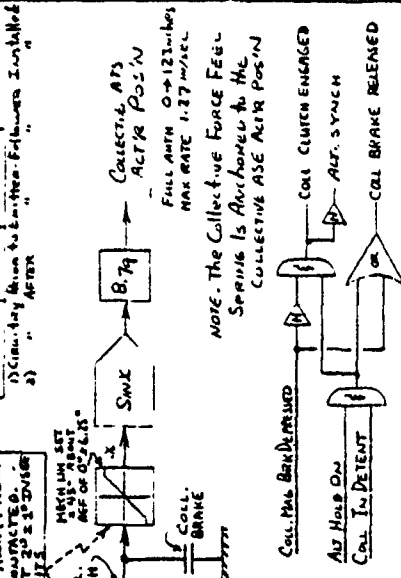 1) Circuitry Shown to Emitter Follower Installed
2) " AFTER " " "
CONTACTED.
MECH LIM SET
± 25° ABOUT
REF OF 0°
X
SIN X
8.79
COLLECTIVE ATS
ACT'R POS'N
FULL AUTH 0→1.23 inches
MAX RATE 1.27 IN/SEC
COLL.
BRAKE
NOTE. The Collective Force Feel
Spring Is Anchored to the
COLLECTIVE ASE ACT'R POS'N
COLL. MAG BRK DEPRESSED
ALT HOLD ON
COLL IN DETENT
N
&
N
&
OR
COLL CLUTCH ENGAGED
ALT. SYNCH
COLL BRAKE RELEASED